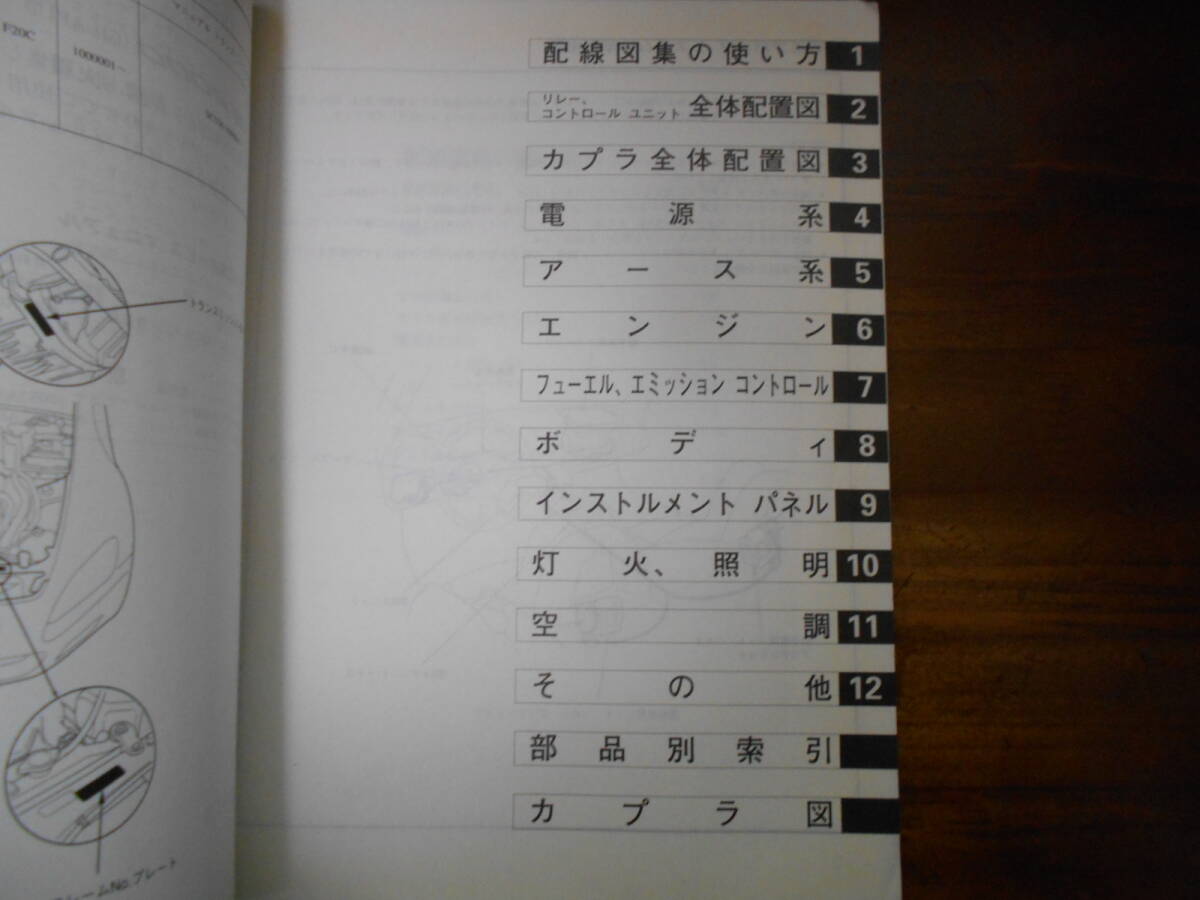 F20C
1000001~
配線図集の使い方 1
リレー、
コントロール ユニット 全体配置図 2
カプラ全体配置図 3
電源系 4
アース系 5
エンジン 6
フューエル、エミッション コントロール 7
ボディ 8
インストルメント パネル 9
灯火、照明 10
空調 11
その他 12
部品別索引
カプラ図